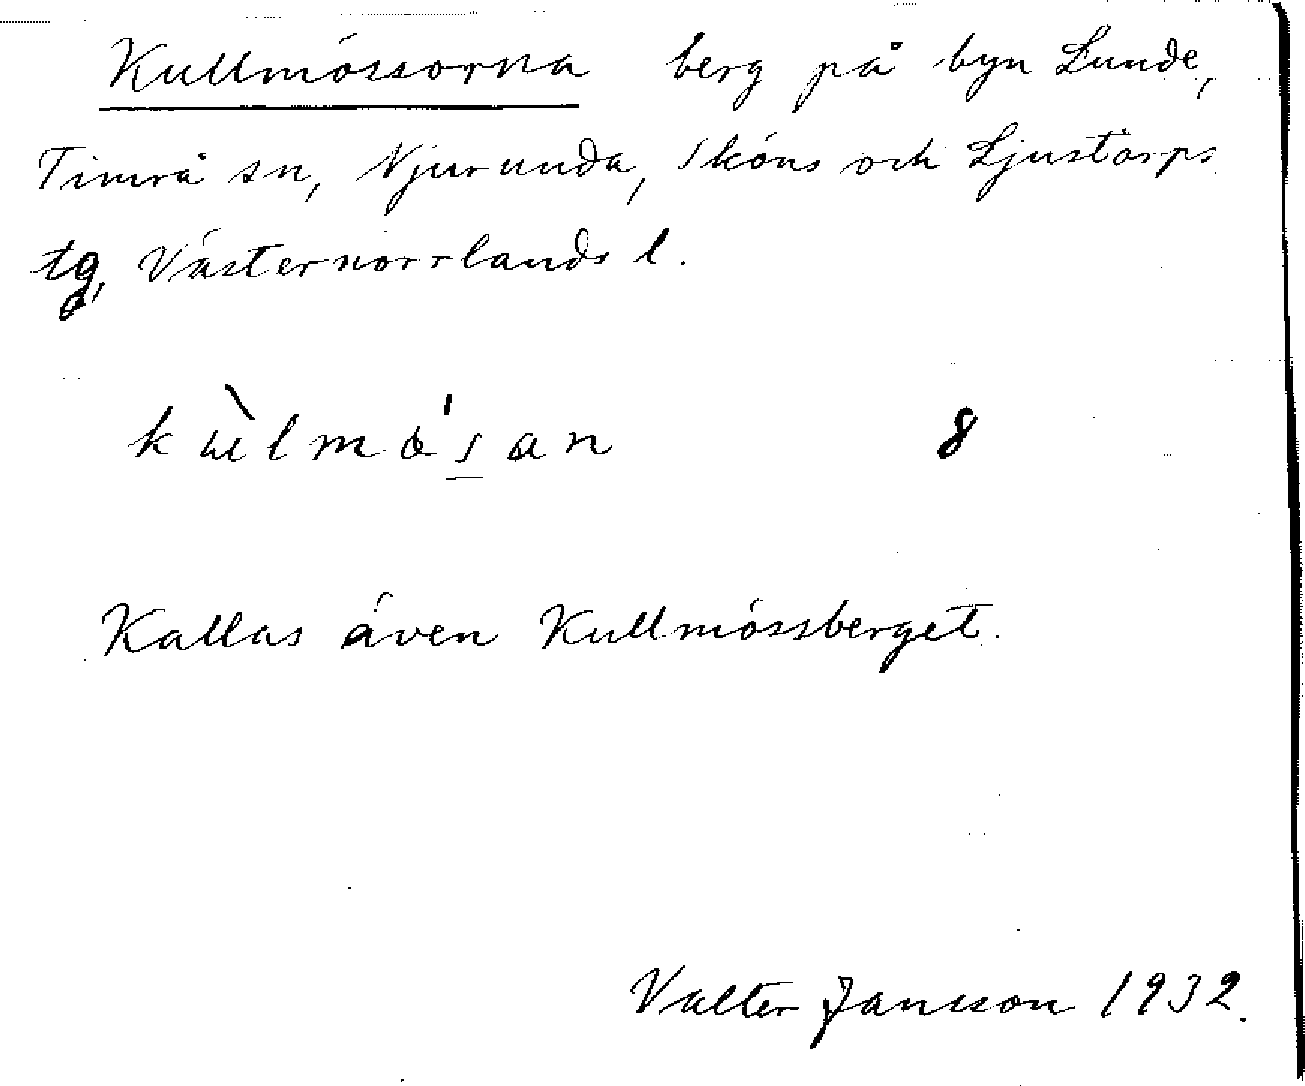 Kullmössorna berg på byn Lunde,
Timrå sn, Njurunda, Sköns och Ljustorps
tg, Västernorrlands l.
8
Kallas även Kullmössberget.
Valter Jansson 1932.